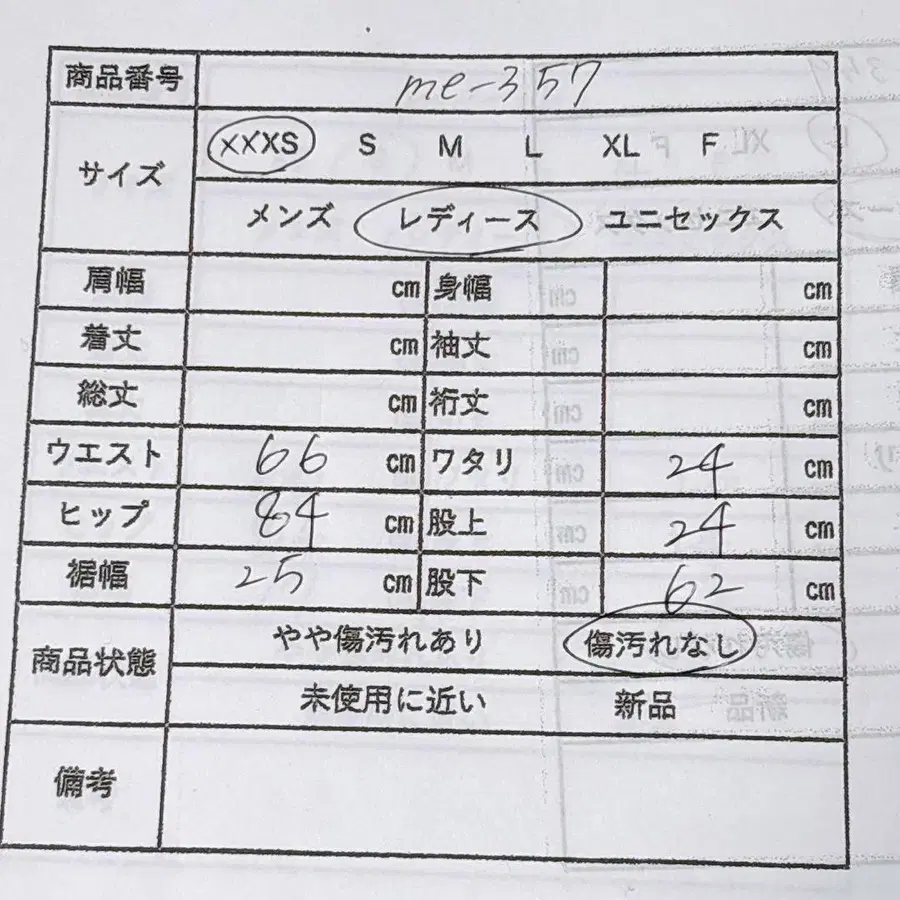 商品番号 me-357
サイズ XXXS S M L XL F
メンズ レディース ユニセックス
肩幅 cm 身幅 cm
着丈 cm 袖丈 cm
総丈 cm 裄丈 cm
ウエスト 66 cm ワタリ 24 cm
ヒップ 84 cm 股上 24 cm
裾幅 25 cm 股下 62 cm
商品状態 やや傷汚れあり 傷汚れなし
未使用に近い 新品
備考